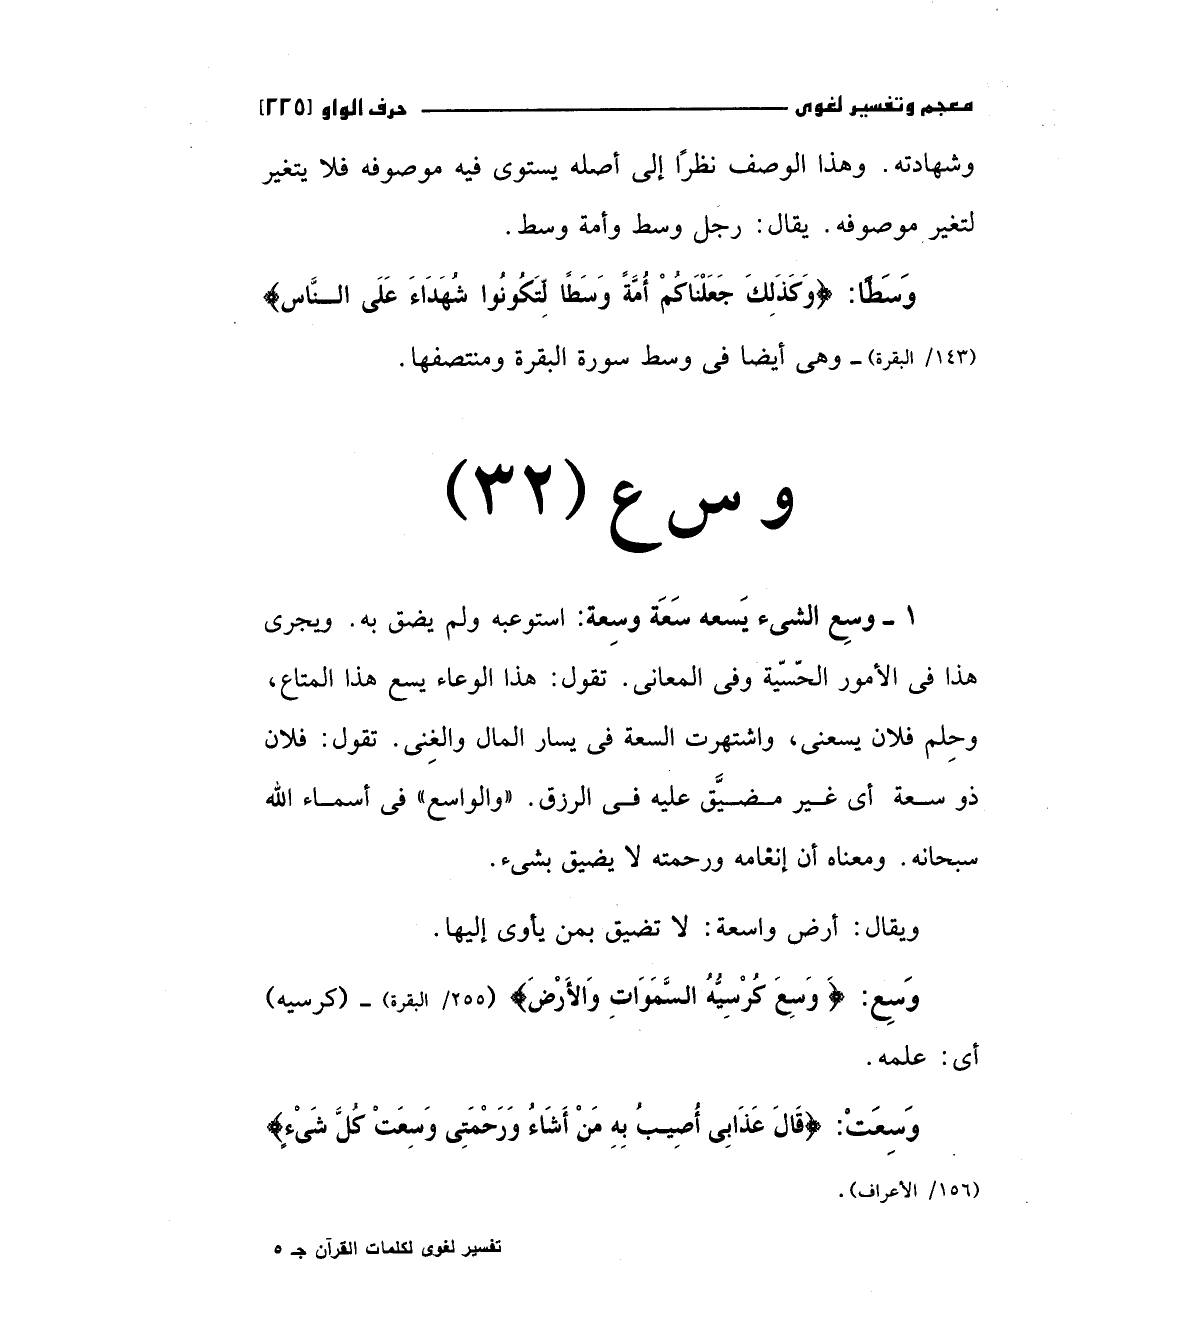 معجم وتفسير لغوى ـــــــ حرف الواو [٢٢٥]
وشهادته. وهذا الوصف نظرًا إلى أصله يستوى فيه موصوفه فلا يتغير
لتغير موصوفه. يقال: رجل وسط وأمة وسط.
وَسَطًا: ﴿وَكَذَلِكَ جَعَلْنَاكُمْ أُمَّةً وَسَطًا لِّتَكُونُوا شُهَدَاءَ عَلَى النَّاسِ﴾
(١٤٣/ البقرة) ـ وهى أيضا فى وسط سورة البقرة ومنتصفها.
و س ع (٣٢)
١ ـ وسِع الشىء يَسعه سَعَة وسِعة: استوعبه ولم يضق به. ويجرى
هذا فى الأمور الحسّيّة وفى المعانى. تقول: هذا الوعاء يسع هذا المتاع،
وحِلم فلان يسعنى، واشتهرت السعة فى يسار المال والغِنى. تقول: فلان
ذو سعة أى غير مضيَّق عليه فى الرزق. «والواسع» فى أسماء الله
سبحانه. ومعناه أن إنعْامه ورحمته لا يضيق بشىء.
ويقال: أرض واسعة: لا تضيق بمن يأوى إليها.
وَسِع: ﴿وَسِعَ كُرْسِيُّهُ السَّمَوَاتِ وَالأَرْضَ﴾ (٢٥٥/ البقرة) ـ (كرسيه)
أى: علمه.
وَسِعَتْ: ﴿قَالَ عَذَابِى أُصِيبُ بِهِ مَنْ أَشَاءُ وَرَحْمَتِى وَسِعَتْ كُلَّ شَىْءٍ﴾
(١٥٦/ الأعراف).
تفسير لغوى لكلمات القرآن جـ ٥